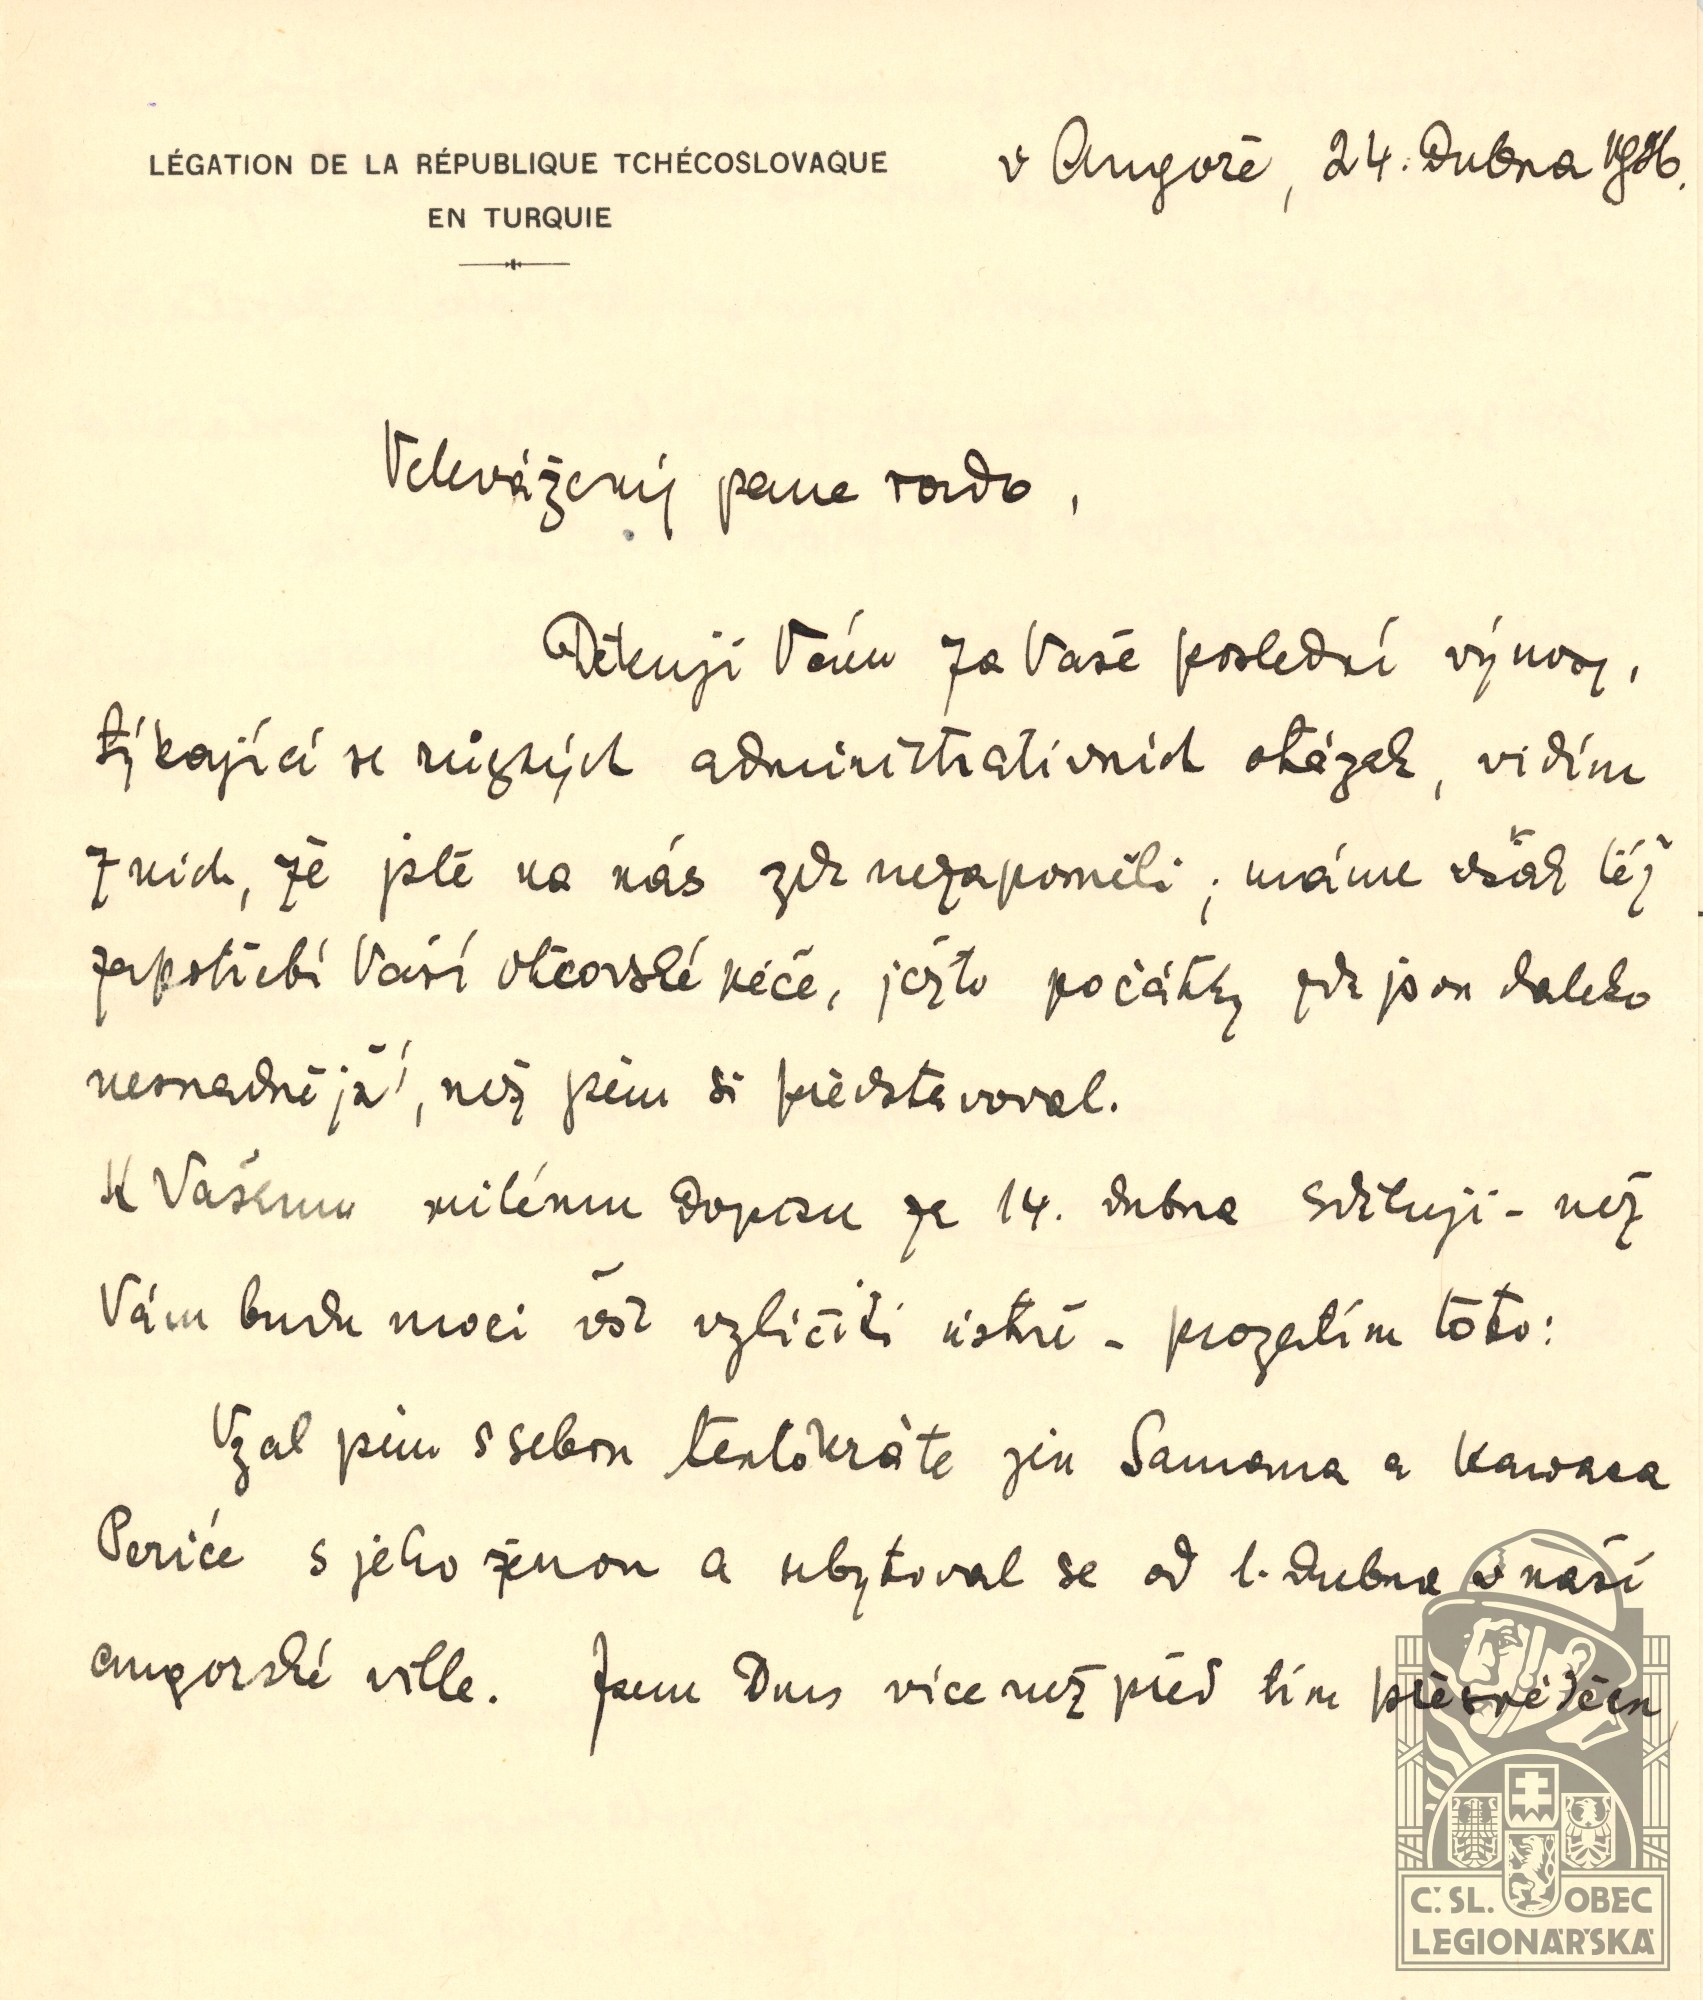 LÉGATION DE LA RÉPUBLIQUE TCHÉCOSLOVAQUE
EN TURQUIE
v Angoře, 24. dubna 1926.
Velevážený pane rado,
Děkuji Vám za Vaše poslední výnosy,
týkající se různých administrativních otázek, vidím
z nich, že jste na nás zde nezapoměli; máme však též
zapotřebí Vaší otcovské péče, ježto počátky zde jsou daleko
nesnadnější, než jsem si představoval.
K Vašemu milému dopisu ze 14. dubna sděluji - než
Vám budu moci vše vylíčiti ústně - prozatím toto:
Vzal jsem s sebou tentokráte jen Samama a kawasa
Periće s jeho ženou a ubytoval se od 1. dubna v naší
angorské ville. Jsem dnes více než před tím přesvědčen
Č. SL. OBEC
LEGIONÁŘSKÁ